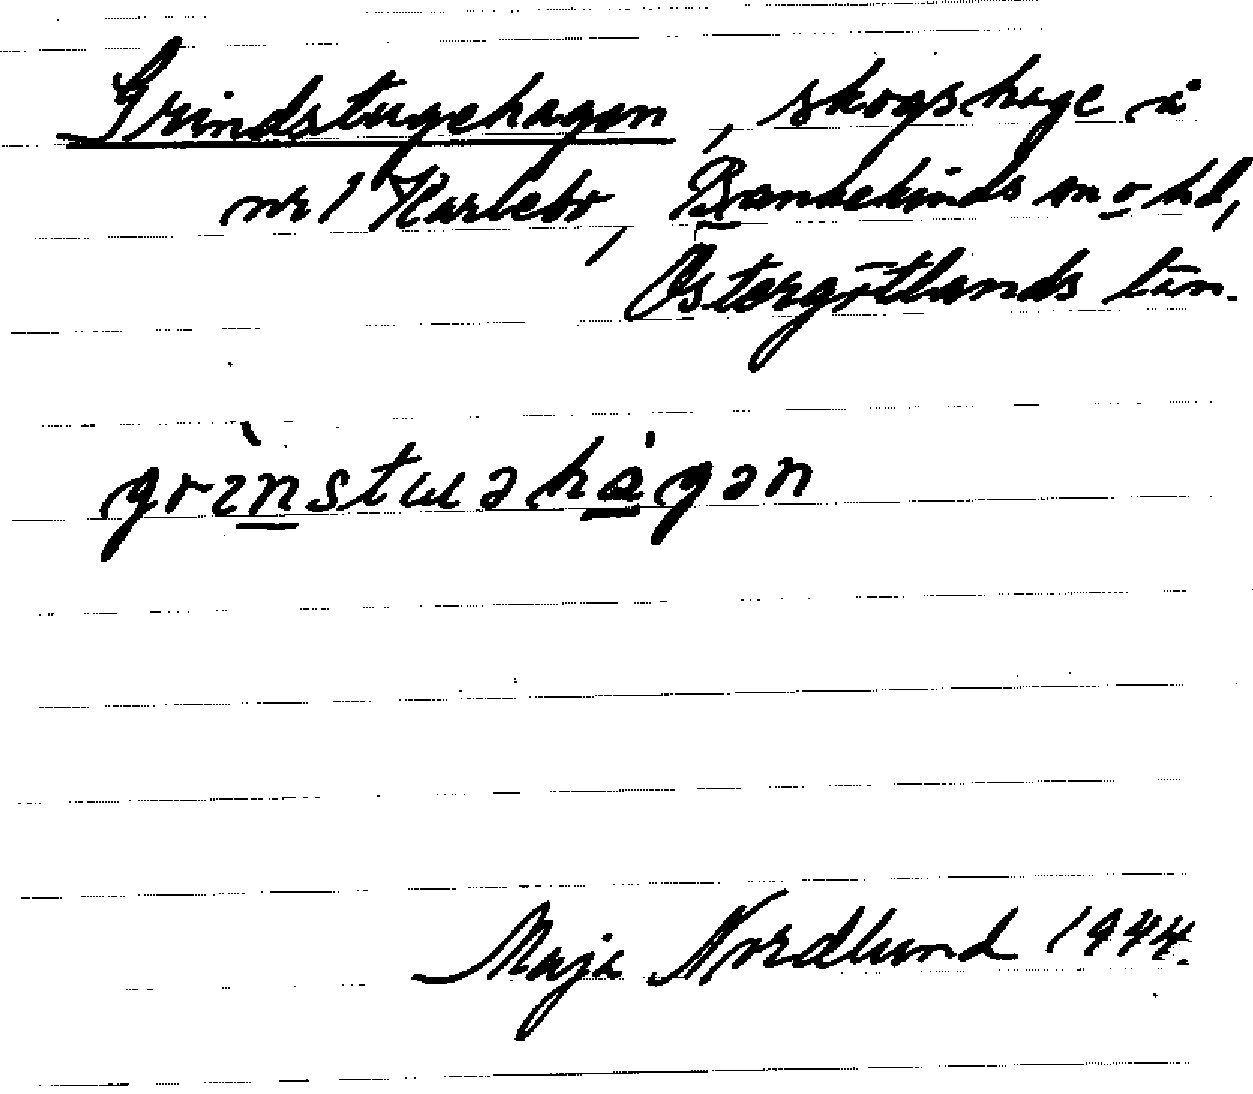 Grindstugehagen, skogshage å
nr 1 Karlebo, Bankekinds sn o hd,
Östergötlands län.
grı̀nstuəhágən
Maja Nordlund 1944.